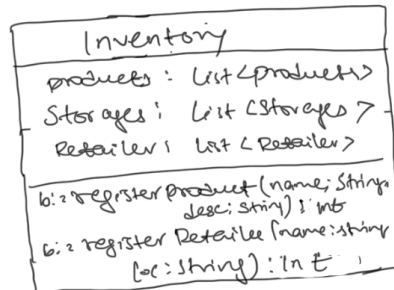 Inventory
products : List<products>
Storages : List <Storages>
Retailer : List <Retailer>
registerproduct(name: String,
desc: String) : int
register Retailer (name: string
loc : String) : int